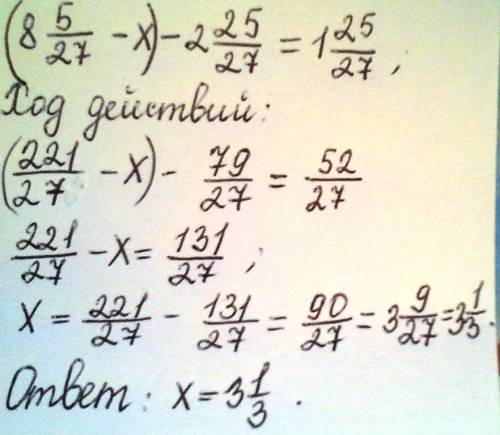 (8 5/27 - x) - 2 25/27 = 1 25/27 ;
Ход действий:
(221/27 - x) - 79/27 = 52/27
221/27 - x = 131/27 ;
x = 221/27 - 131/27 = 90/27 = 3 9/27 = 3 1/3 .
Ответ: x = 3 1/3 .